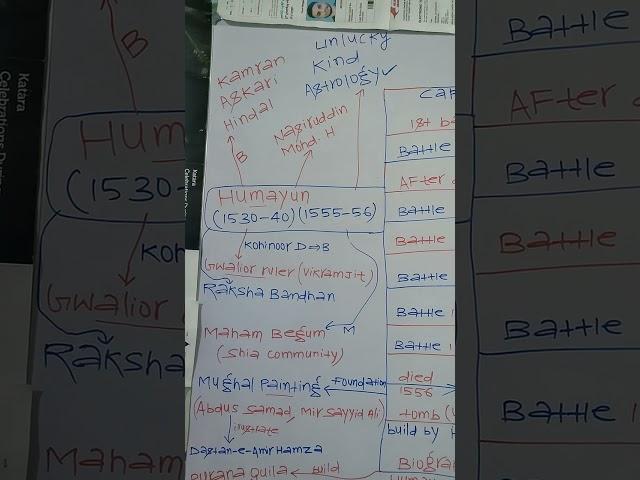 unlucky
Kind
Astrology ✓
Kamran
Askari
Hindal
B
Nasiruddin
Mohd. H
B
Humayun
(1530-40) (1555-56)
Kohinoor D⇒B
Gwalior ruler (Vikramjit)
Raksha Bandhan
M
Maham Begum
(Shia community)
Mughal Painting
Foundation
(Abdus Samad, Mir Sayyid Ali)
illustrate
Dastan-e-Amir Hamza
Purana Quila ← build
1st b
Battle
After
Battle
Battle
Battle
Battle
Battle
died
1556
tomb
build by H
Biogra
Katara
Celebrations
B
Hum
(1530-
Koh
Gwalior
Raksha
Maham
Battle
After
Battle
Battle
Battle
Battle